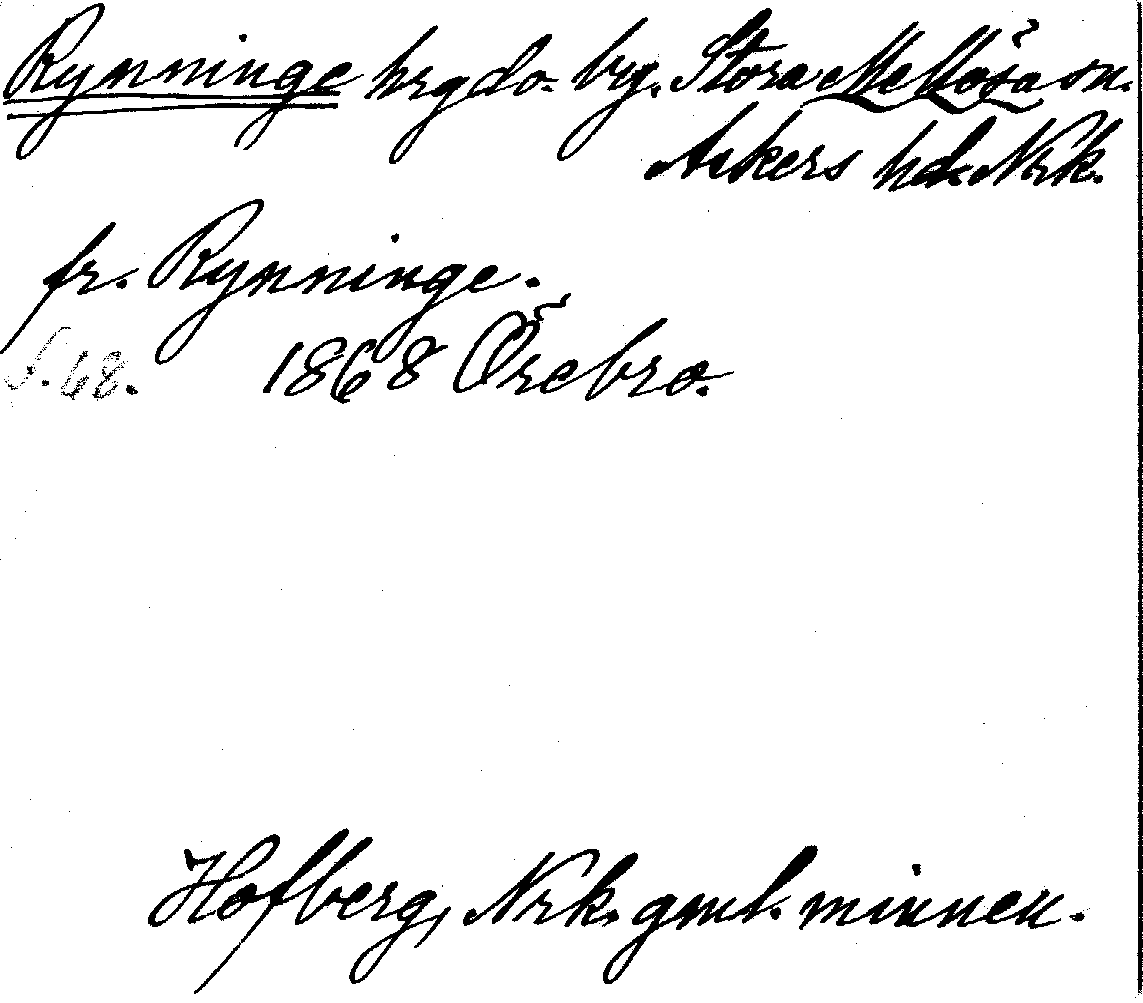 Rynninge hrgdo- byg. Stora Mellösa sn.
Askers hd. Nrk.
fr. Rynninge.
S. 68. 1868 Örebro.
Hofberg, Nrk. gml. minnen.